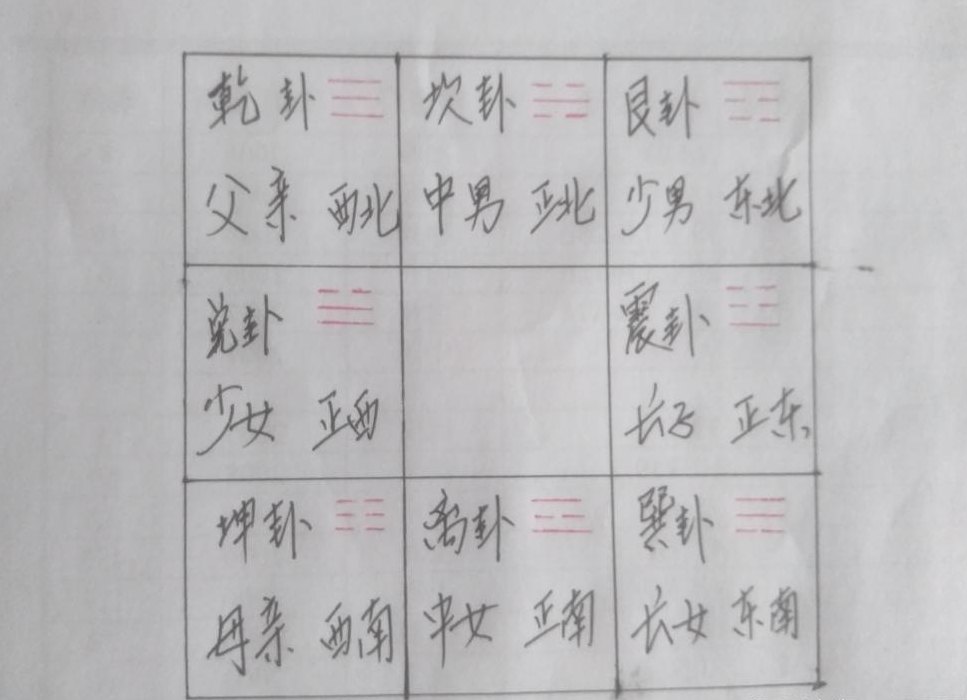 乾卦 ☰
父亲 西北
坎卦 ☵
中男 正北
艮卦 ☶
少男 东北
兑卦 ☱
少女 正西
震卦 ☳
长子 正东
坤卦 ☷
母亲 西南
离卦 ☲
中女 正南
巽卦
长女 东南